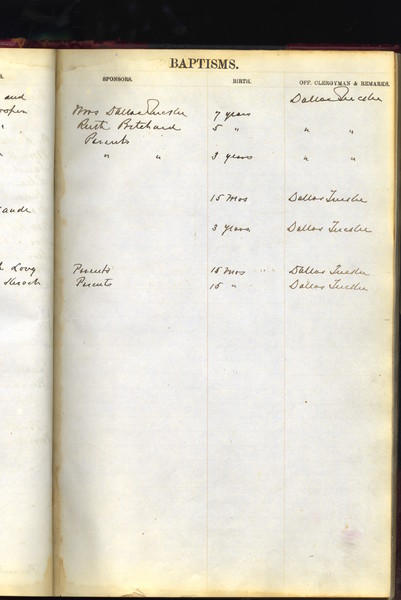 BAPTISMS.
SPONSORS. BIRTH. OFF. CLERGYMAN & REMARKS.
and Dallas Tucker
Mrs Dallas Tucker 7 years
Ruth Pritchard 5 " " "
Parents
" " 3 years " "
15 Mos Dallas Tucker
3 years Dallas Tucker
Long Parents 15 Mos Dallas Tucker
Parents 15 " Dallas Tucker